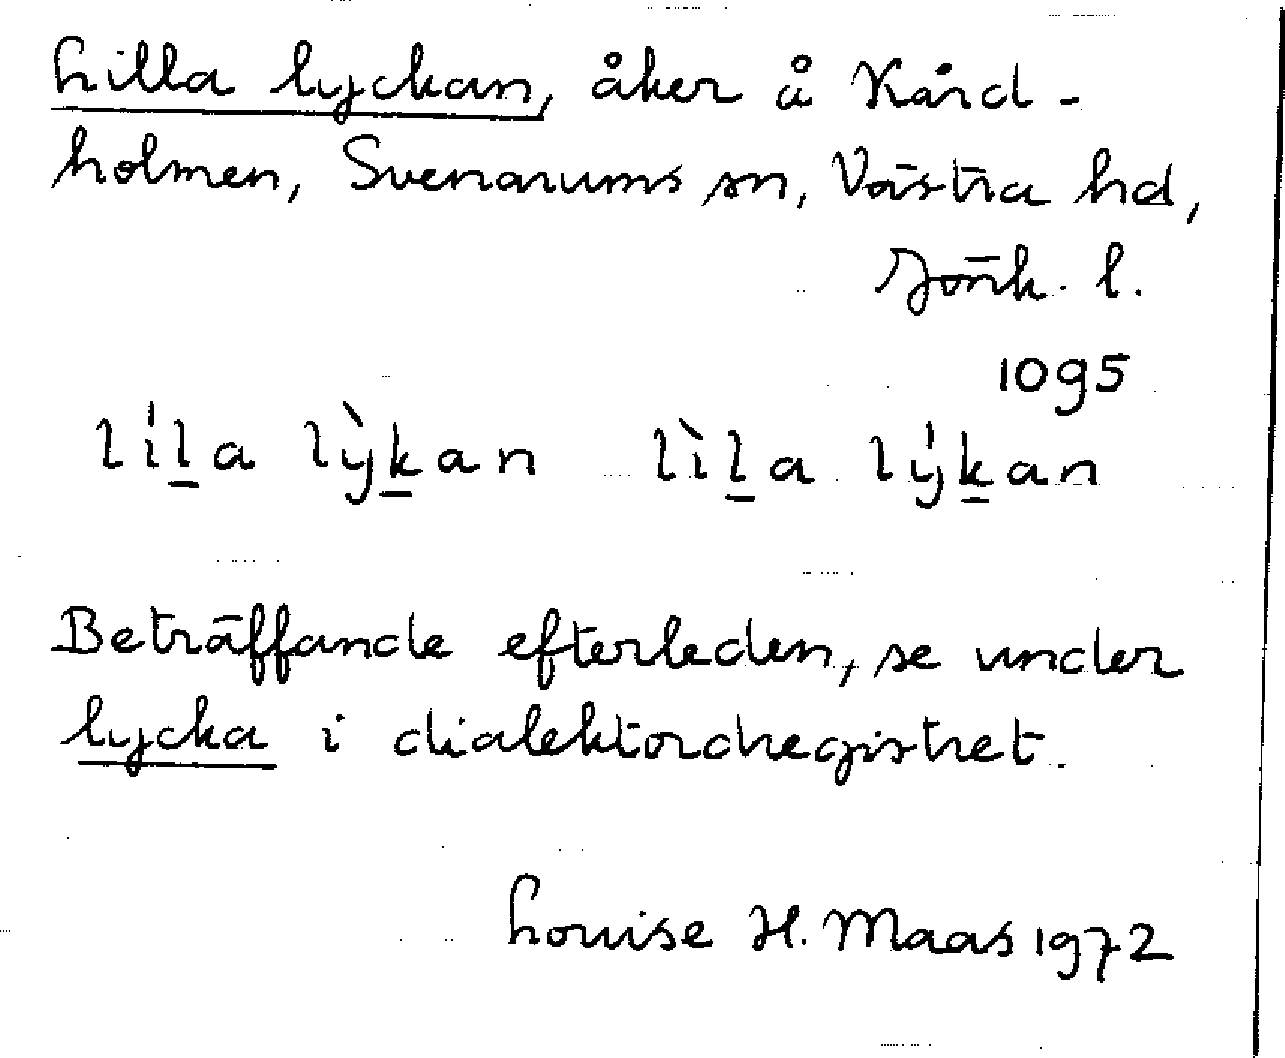 Lilla lyckan, åker å Kård-
holmen, Svenarums sn, Västra hd,
Jönk. l.
1095
líl̲a lỳk̲an lìl̲a lýk̲an
Beträffande efterleden, se under
lycka i dialektordregistret.
Louise H. Maas 1972